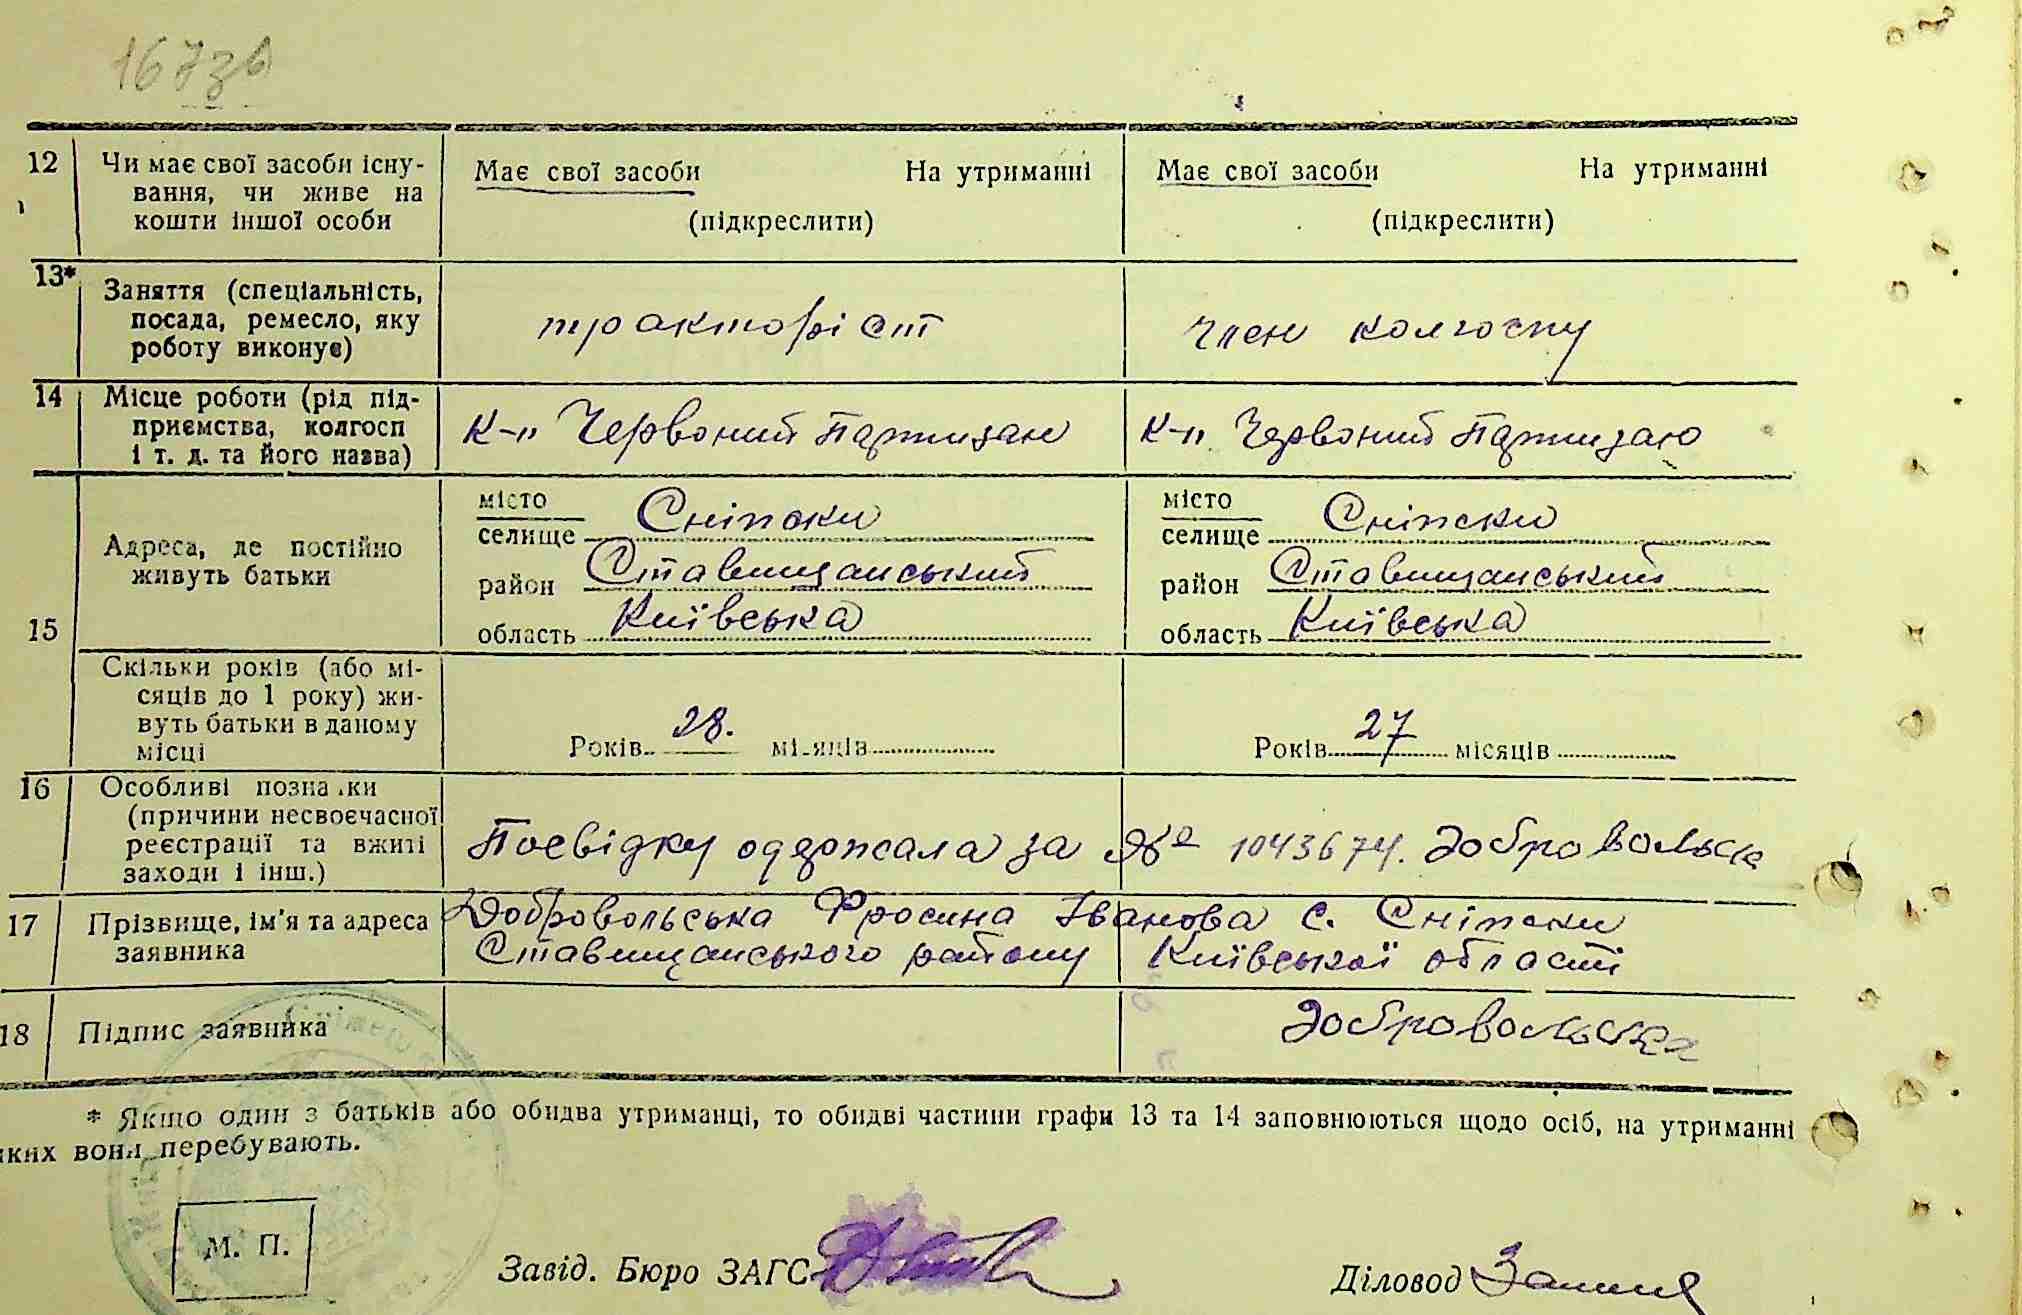 167зв
12 Чи має свої засоби існу- Має свої засоби На утриманні Має свої засоби На утриманні
вання, чи живе на
кошти іншої особи (підкреслити) (підкреслити)
13* Заняття (спеціальність,
посада, ремесло, яку тракторіст член колгоспу
роботу виконує)
14 Місце роботи (рід під-
приємства, колгосп К-п Червоний Партизан К-п Червоний Партизан
і т. д. та його назва)
місто місто
селище Сніжки селище Сніжки
Адреса, де постійно
живуть батьки район Ставищанський район Ставищанський
15 область Київська область Київська
Скільки років (або мі-
сяців до 1 року) жи-
вуть батьки в даному
місці Років 28. місяців Років 27 місяців
16 Особливі познаки
(причини несвоєчасної
реєстрації та вжиті Посвідку одержала за № 1043674. Добровольськ
заходи і інш.)
17 Прізвище, ім'я та адреса Добровольська Фросина Іванова с. Сніжки
заявника Ставищанського району Київської області
18 Підпис заявника Добровольська
* Якщо один з батьків або обидва утриманці, то обидві частини графи 13 та 14 заповнюються щодо осіб, на утриманні
яких вони перебувають.
М. П.
Завід. Бюро ЗАГС Діловод